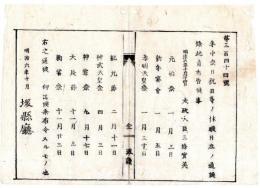 第三百四十四號
年中祭日祝日等ノ休暇日左ノ通
候此旨布告候事
太政大臣三條實美
元始祭 一月三日
新年宴會 一月五日
孝明天皇祭 一月三十日
紀元節 二月十一日
神武天皇祭 四月三日
神嘗祭 九月十七日
天長節 十一月三日
新嘗祭 十一月二十三日
右之通被
明治六年十月
堺縣廳